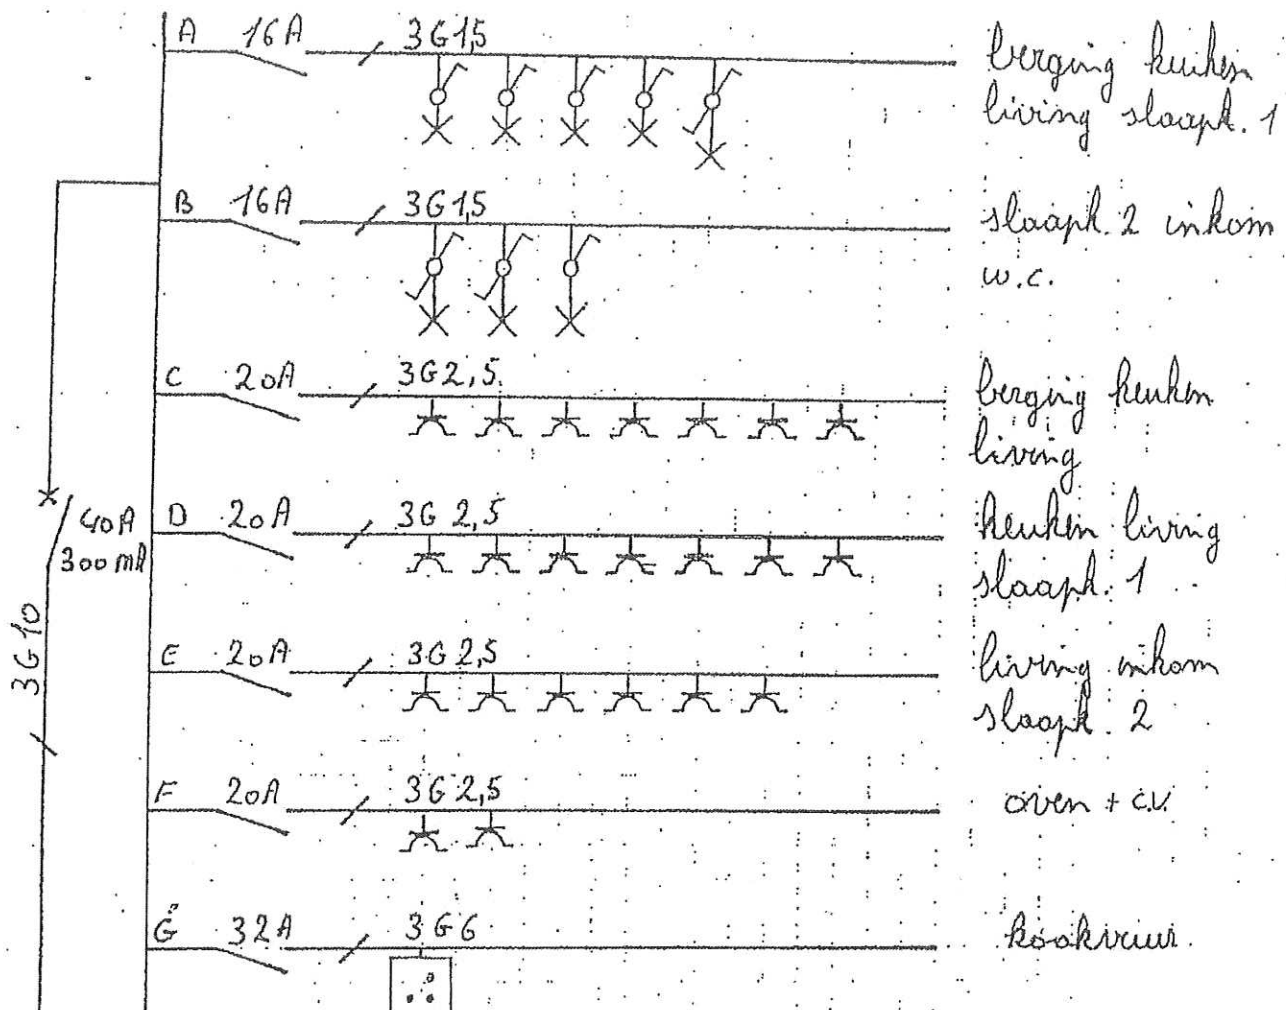 A 16A 3G1,5 berging keuken
living slaapk. 1
B 16A 3G1,5 slaapk. 2 inkom
w.c.
C 20A 3G2,5 berging keuken
living
40A
300 mA
3G10
D 20A 3G2,5 keuken living
slaapk. 1
E 20A 3G2,5 living inkom
slaapk. 2
F 20A 3G2,5 oven + c.v.
G 32A 3G6 kookvuur